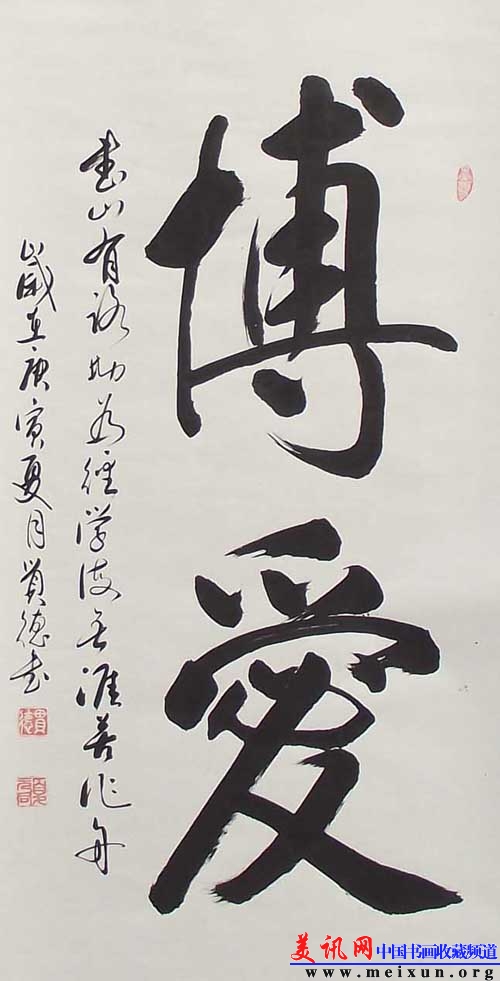 博愛
書山有路勤为徑学海无涯苦作舟
歲在庚寅夏月德书
美讯网中国书画收藏频道
www.meixun.org